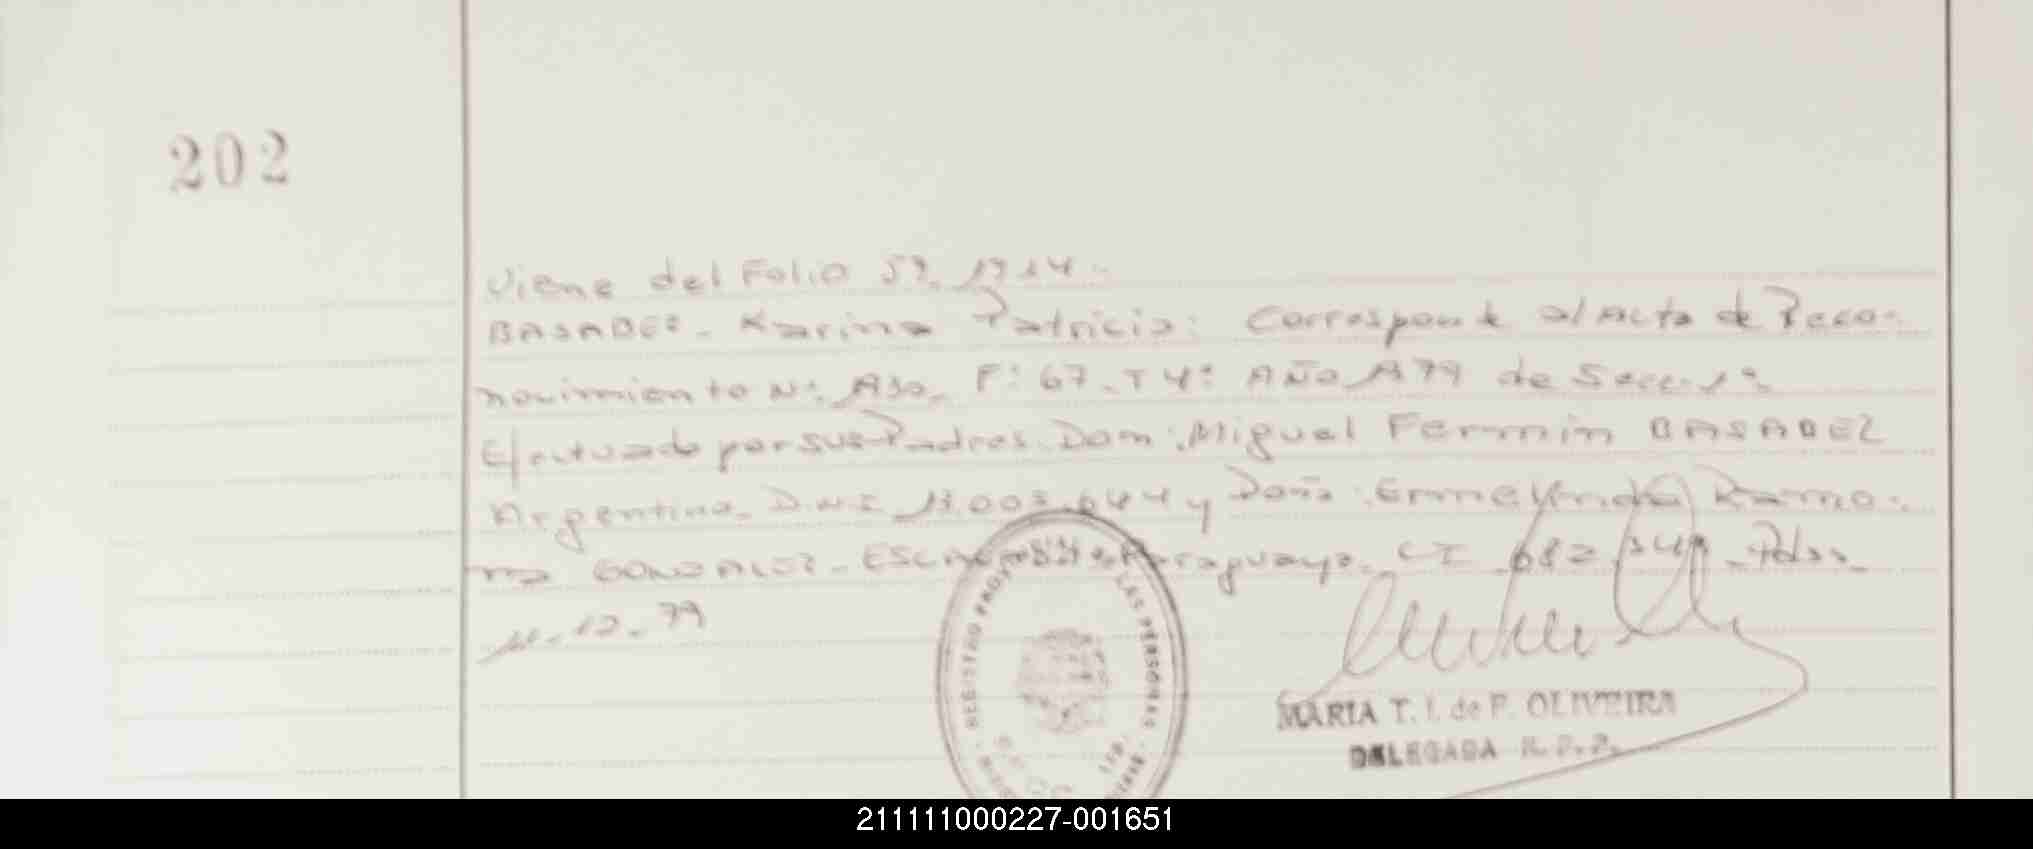 202
Viene del Folio 59. 1914.-
BASABEZ - Karina Patricia: Corresponde al Acta de Reco-
nocimiento Nº: A30. Fº: 67 - T 4º: AÑO 1979 de Secc. 1ª
Efectuado por sus Padres Dom: Miguel Fermin BASABEZ
Argentino. D.N.I 13.003.644 y Doña: Ermelynda Ramo-
na GONZALEZ - Paraguaya. CI 682 - Pdas.
11-12-79
REGISTRO LAS PERSONAS
MARIA T. I. de P. OLIVEIRA
DELEGADA R. P. P.
211111000227-001651